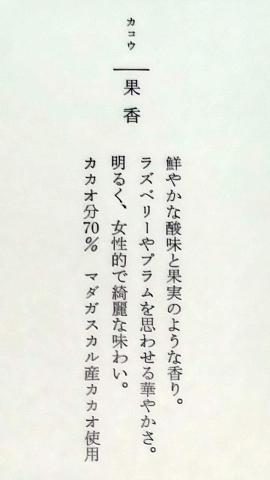 カコウ
果香
鮮やかな酸味と果実のような香り。
ラズベリーやプラムを思わせる華やかさ。
明るく、女性的で綺麗な味わい。
カカオ分70% マダガスカル産カカオ使用